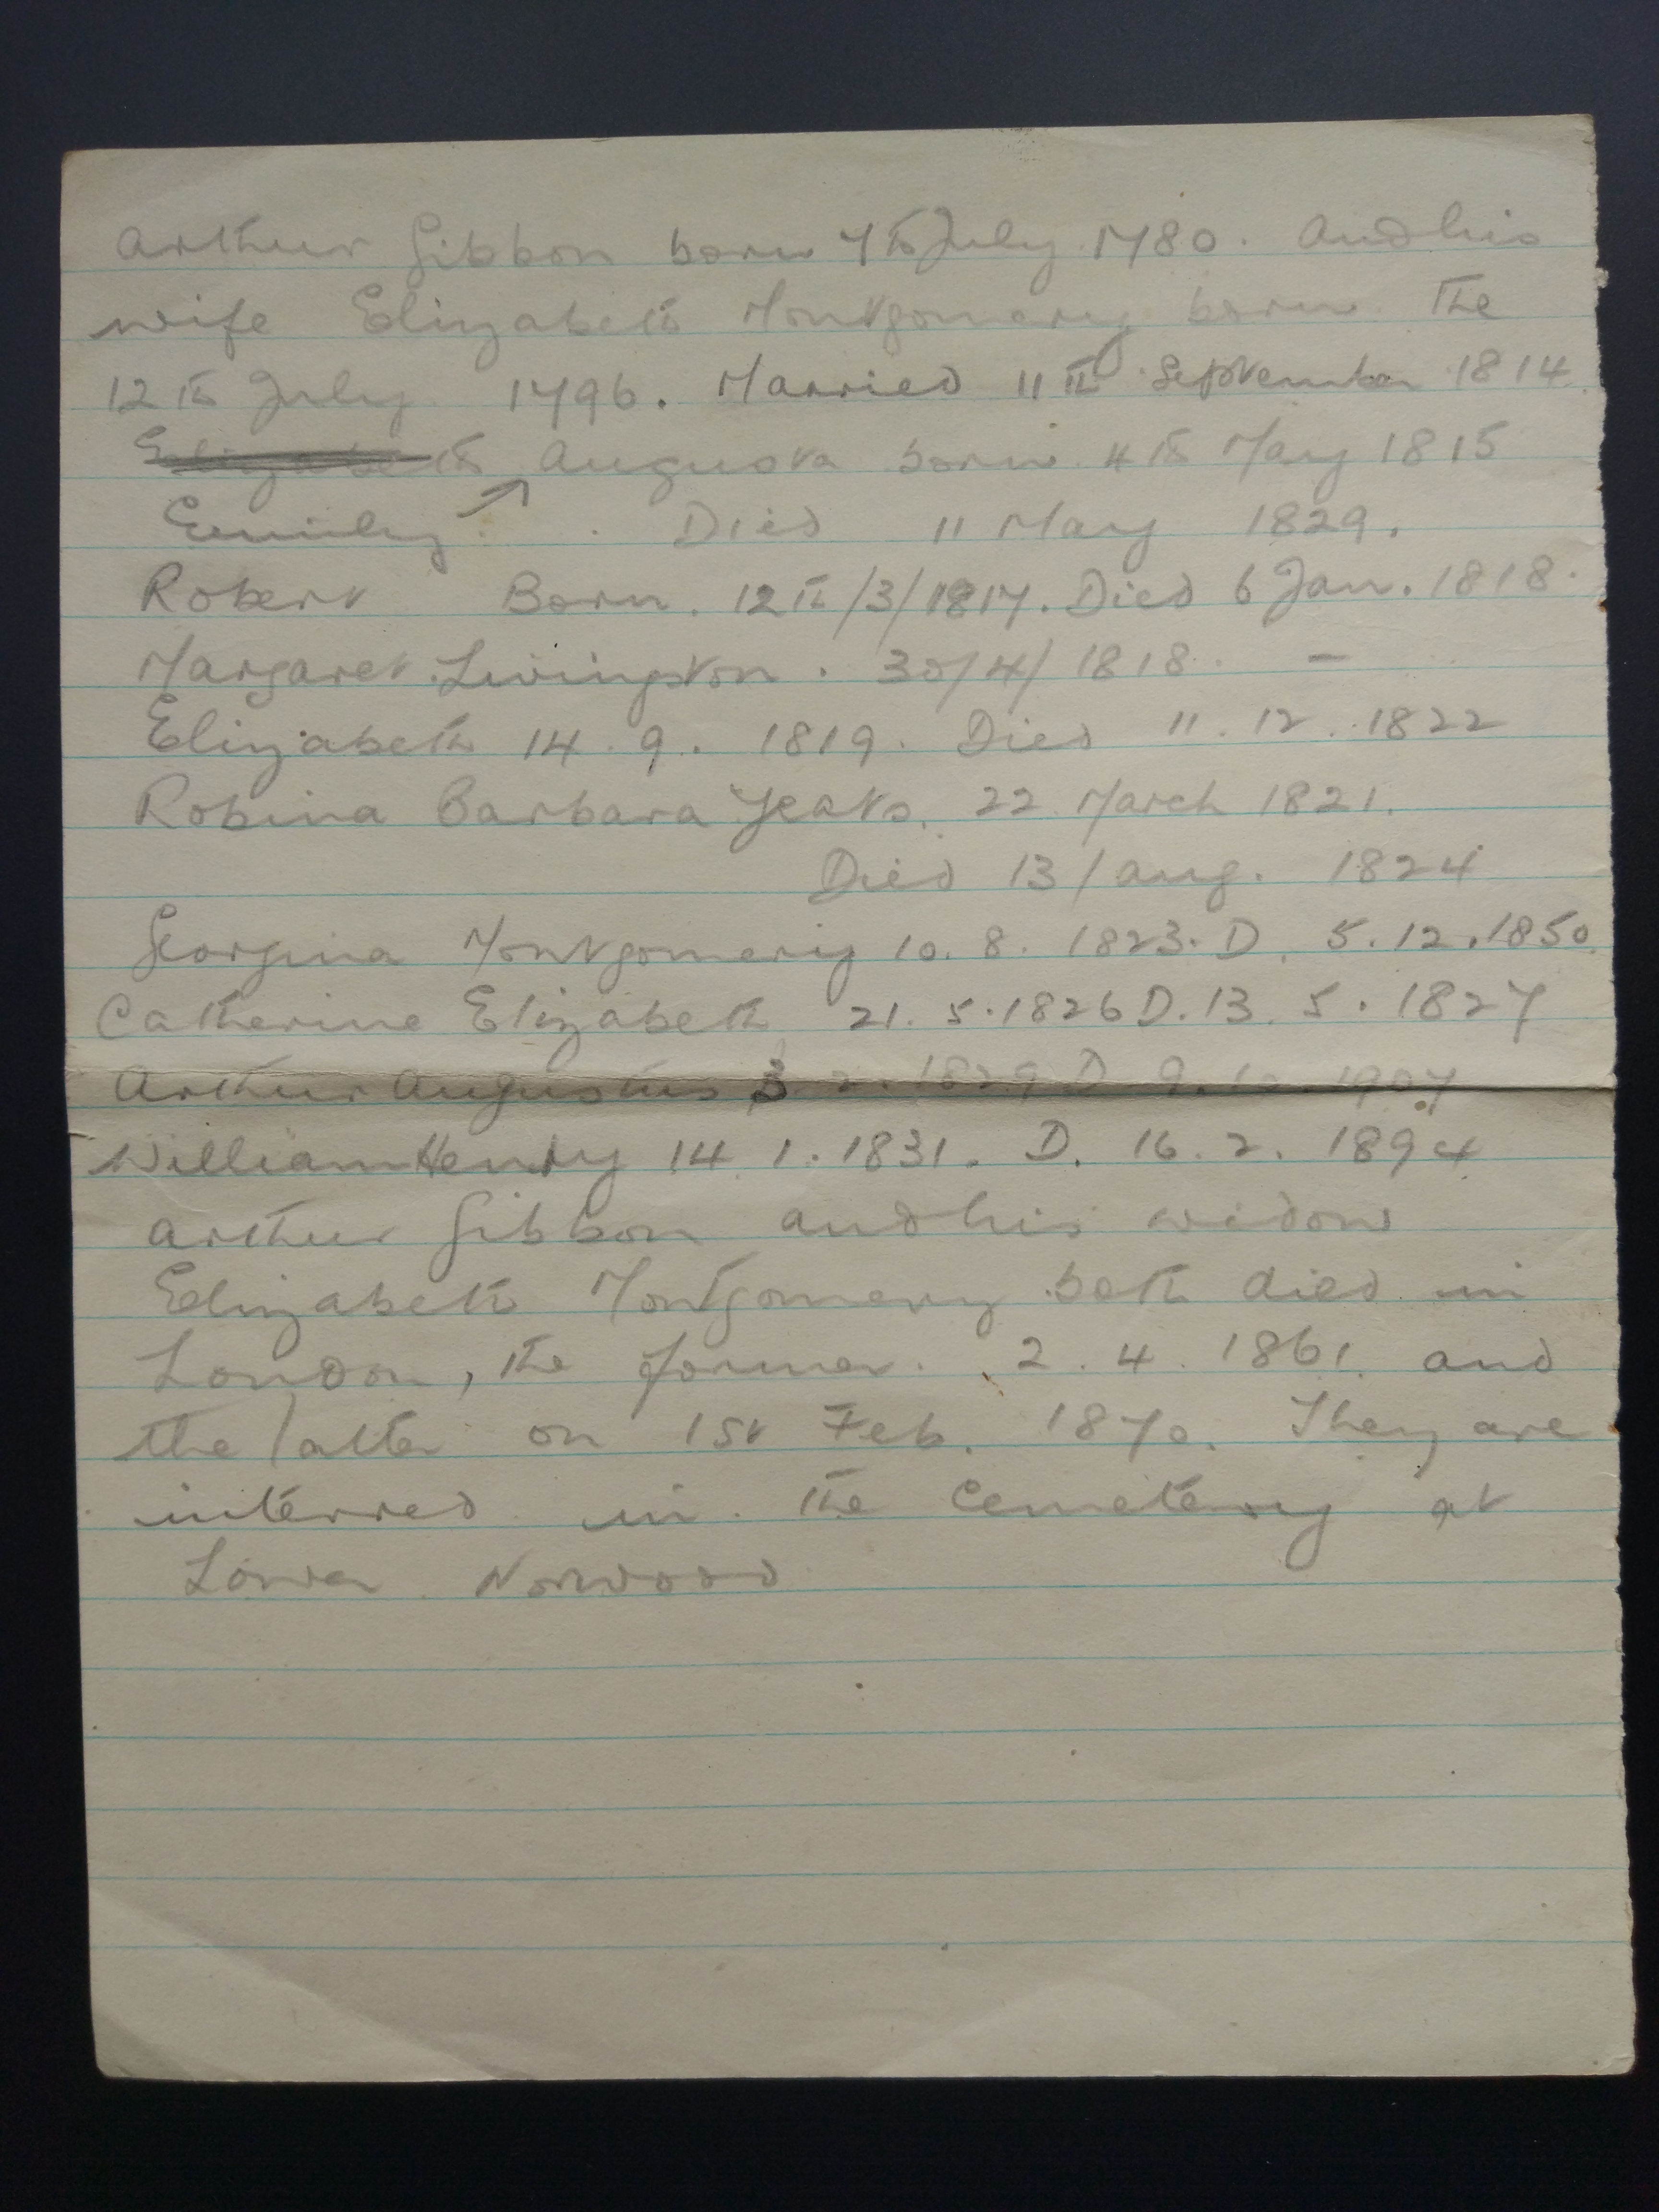 Arthur Gibbon born 7th July 1780. And his
wife Elizabeth Montgomery born the
12th July 1796. Married 11th September 1814.
Elizabeth Augusta born 4th May 1815
Emily ↗ . Died 11 May 1829.
Robert Born. 12th/3/1817. Died 6 Jan. 1818.
Margaret Livingston. 30/4/1818. —
Elizabeth 14. 9. 1819. Died 11. 12. 1822
Robina Barbara Yeats. 22 March 1821.
Died 13/Aug. 1824
Georgina Montgomery 10. 8. 1823. D. 5. 12. 1850.
Catherine Elizabeth 21. 5. 1826 D. 13. 5. 1827
Arthur Augustus 3. 2. 1829 D 9. 1907
William Henry 14 1. 1831. D. 16. 2. 1894
Arthur Gibbon and his widow
Elizabeth Montgomery both died in
London, the former. 2. 4. 1861. and
the latter on 1st Feb. 1870. They are
interred in the Cemetery at
Lower Norwood